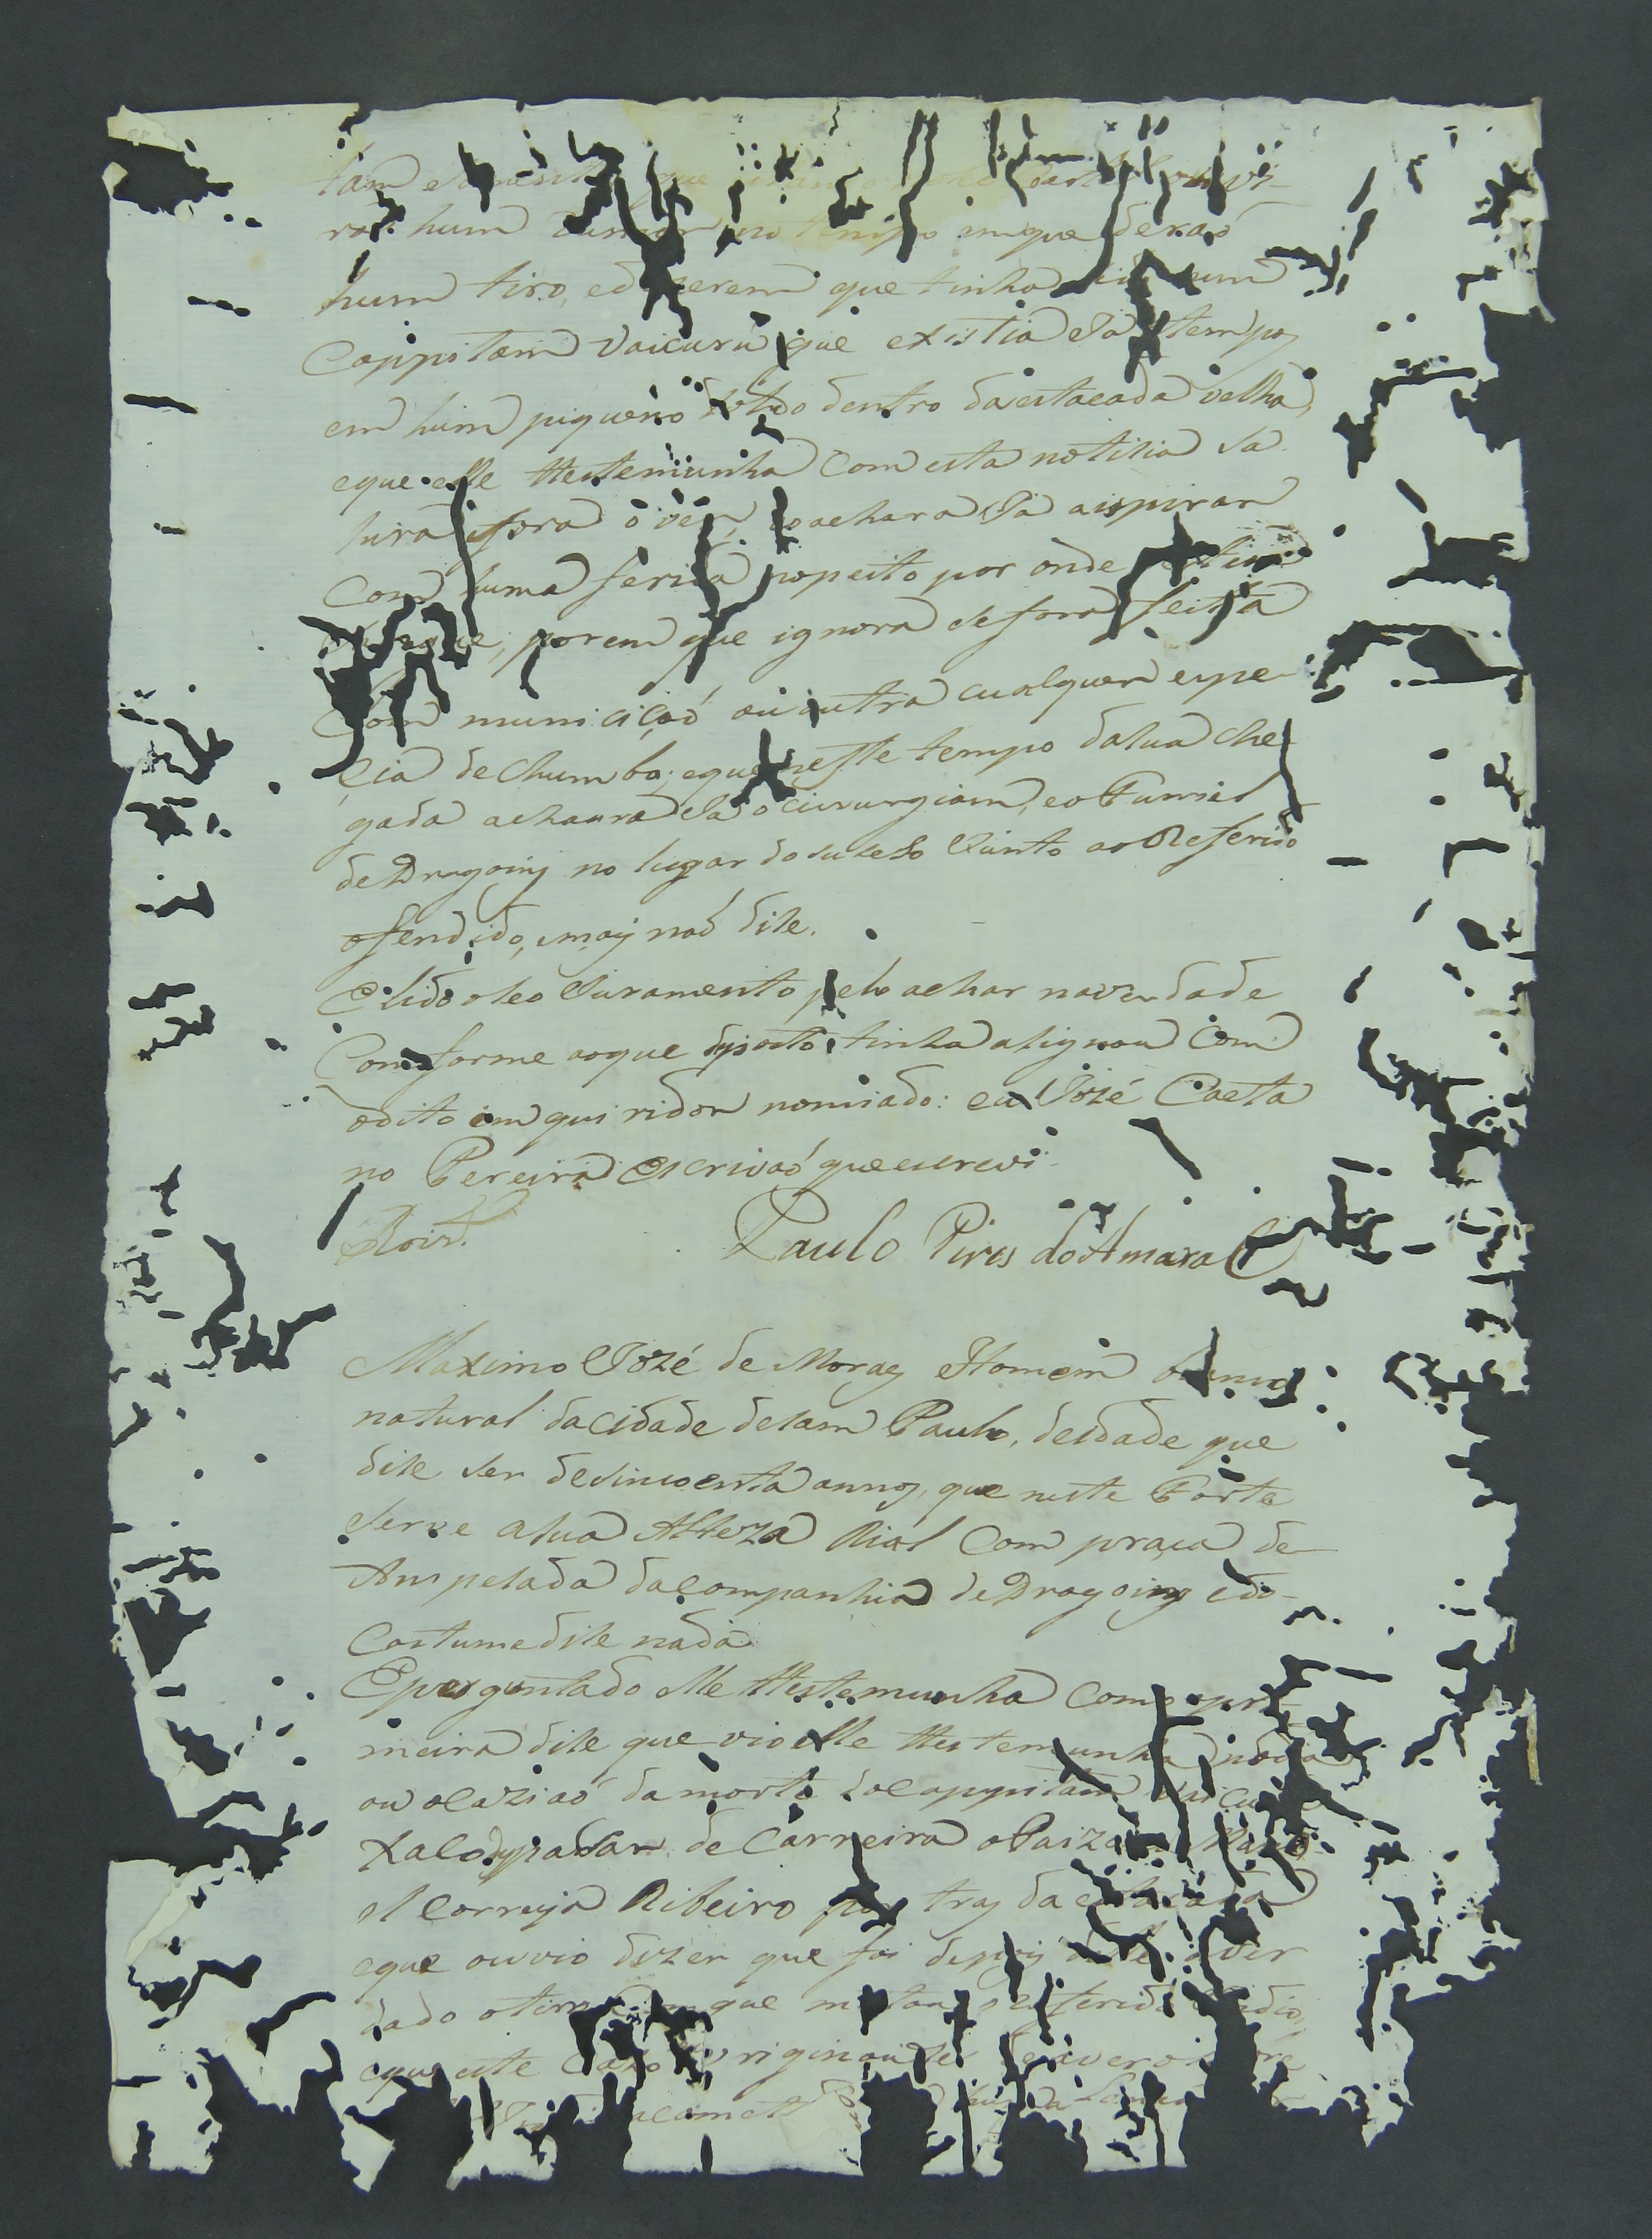 tam somente que
ra hum tempo em que derão
hum tiro, e dizerem que tinha hum
Cappitam Vaicurú que existia Ja tempos
em hum piqueno dentro da estacada velha,
e que elle ttestemunha Com esta notisia sa
hira fora o ver, e o achara Ja aispirar
Com huma ferida no peito por onde
porem que ignora se fora feita
Com municiçaõ ou outra cualquer espe
cia de Chumbo; e que neste tempo da sua che
gada achaura Ja o cirurgiam, e o Furriel
de Dragoins no lugar do suseso Junto ao Referido
ofendido, e mais naõ dise.
E lido o seo Juramento pelo achar na verdade
Comforme ao que desposto tinha asignou Com
o dito imquiridor nomiado: eu Jozé Caeta
no Pereira Escrivaõ que escrevi.
Paulo Pires do Amaral
Maximo Jozé de Moraes Homem branco
natural da Cidade de sam Paulo, de idade que
dise ser de sincoenta annos, que neste Forte
serve a sua Alteza Rial Com praça de
Anspesada da Companhia de Dragoins e do
Costume dise nada.
E perguntado elle ttestemunha Como a pri
meira dise que vio elle ttestemunha
ou ocaziaõ da morte do Cappitam
passar de Carreira o Paizano Mano
el Correya Ribeiro por tras da estacada
e que ouvio dizer que foi depois de ver
dado o tiro que matou o referido indio,
e que este Cazo originouse